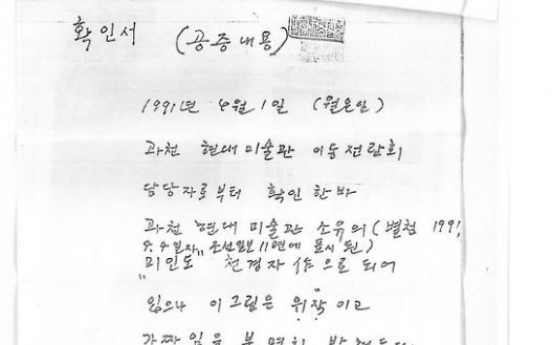 확인서 (공증내용)
1991년 4월 1일 (월요일)
과천 현대미술관 이동전람회
담당자로부터 확인한바
과천 현대미술관 소유의 (별첨 1991
4.4일자 조선일보 11면에 표시된)
"미인도" 천경자 作으로 되어
있으나 이그림은 위작이고
가짜임을 분명히